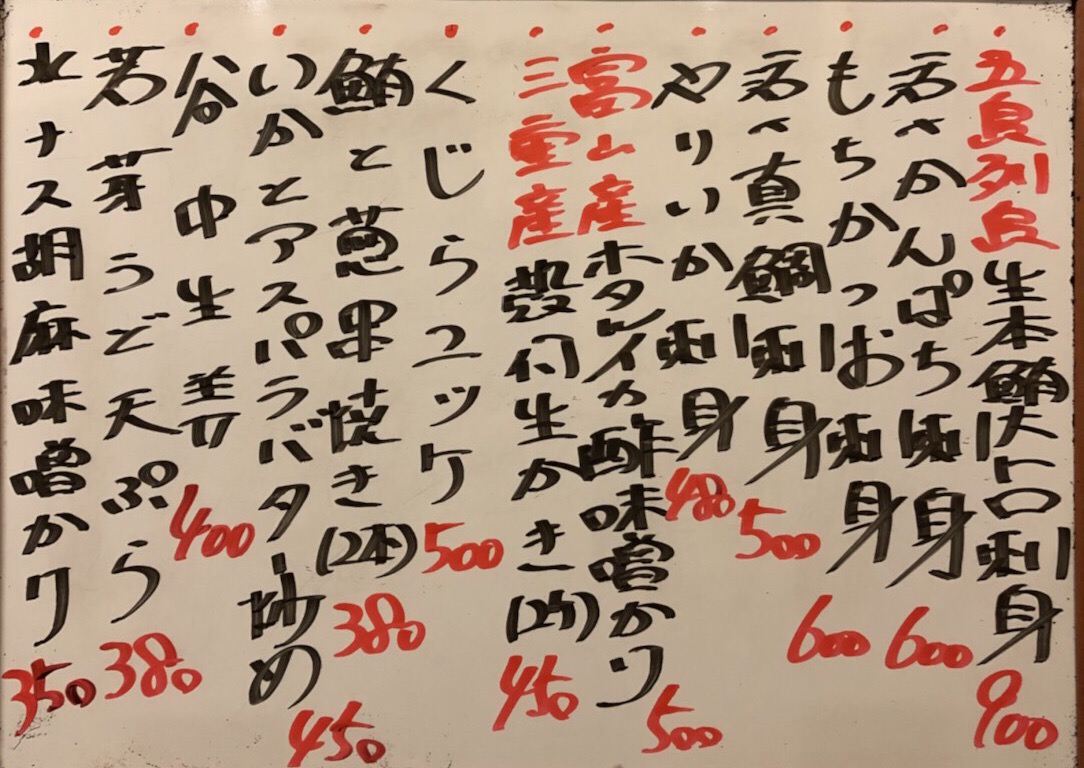 五島列島生本鮪大トロ刺身 900
かんぱち刺身 600
もちかつお刺身 600
真鯛刺身 500
やりいか刺身 480
富山産ホタルイカ酢味噌かけ 500
三重産殻付生かき(2ケ) 450
くじらユッケ 500
鮪と葱串焼き(2本) 380
いかとアスパラバター炒め 450
谷中生姜 400
若芽うど天ぷら 380
水ナス胡麻味噌かけ 350